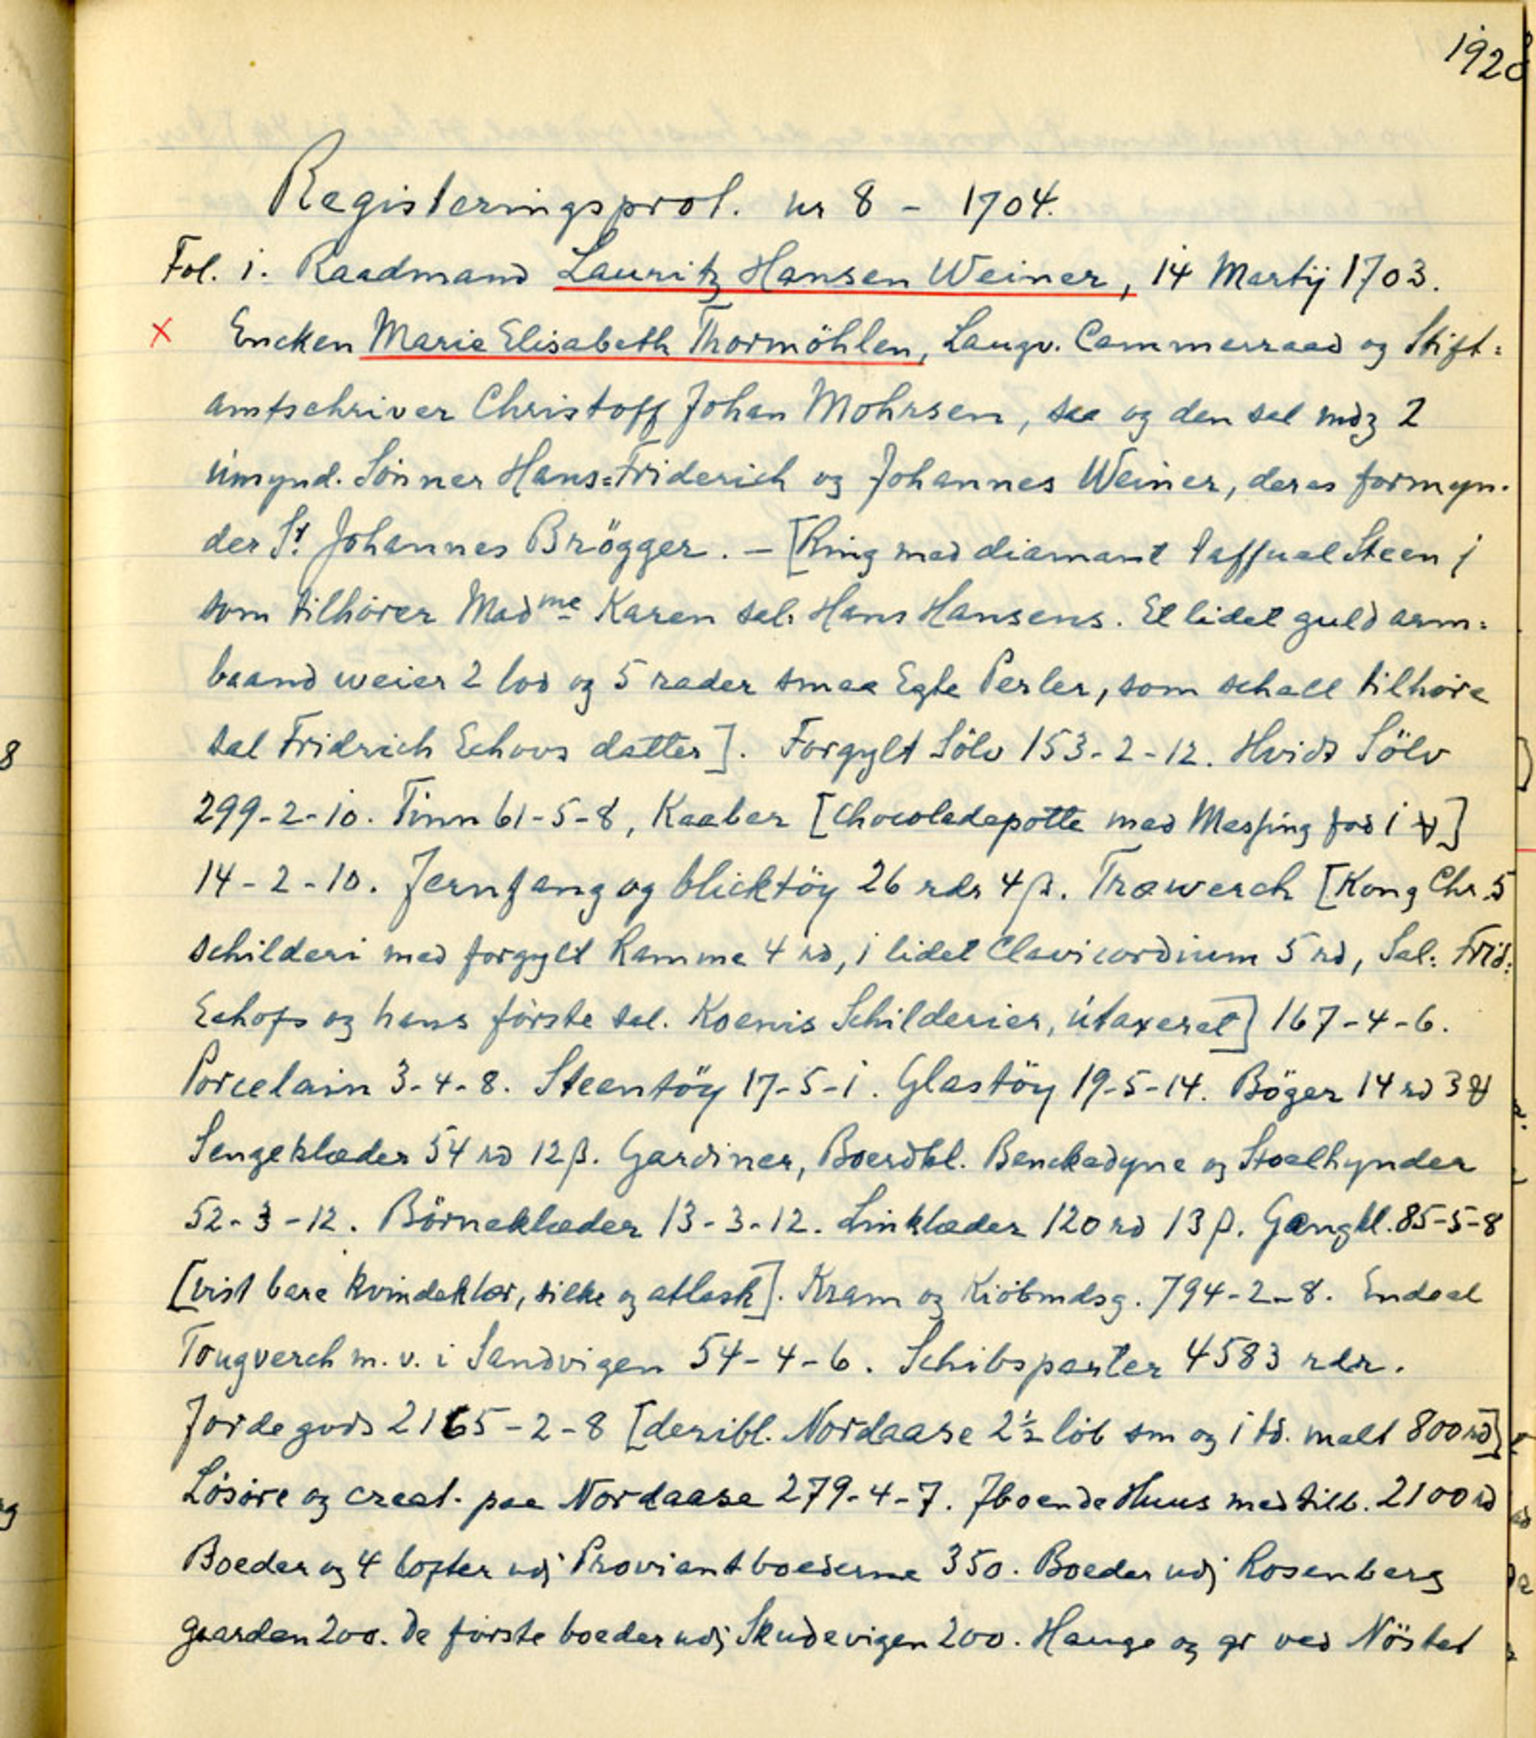 1928
Registeringsprot. nr 8 - 1704.
Fol. 1. Raadmand Lauritz Hansen Weiner, 14 Martij 1703.
x Encken Marie Elisabeth Thormöhlen, Laugv. Cammerraad og Stift=
amtschriver Christoff Johan Mohrsen, saa og den sal mdz 2
umynd. Sønner Hans=Friderich og Johannes Weiner, deres formyn-
der Sr. Johannes Brögger. - [Ring med diamant taffuel Steen j
som tilhører Madme Karen sal. Hans Hansens. Et lidet guld arm=
baand weier 2 lod og 5 rader smaa Egte Perler, som schall tilhøre
sal Fridrich Echovs datter]. Forgylt Sölv 153-2-12. Hvidt Sölv
299-2-10. Tinn 61-5-8, Kaaber [Chocoladepotte med Messing fod 1 ]
14-2-10. Jernfang og blicktöy 26 rdr 4 β. Træwerch [Kong Chr. 5
schilderi med forgylt Ramme 4 rd, 1 lidet Clavicordium 5 rd, Sal: Frid:
Echofs og hans første sal. Koenis Schilderier, utaxeret] 167-4-6.
Porcelain 3-4-8. Steentöy 17-5-1. Glastöy 19-5-14. Böger 14 rd 3
Sengeklæder 54 rd 12 β. Gardiner, Boerdkl. Benckedyne og Stoelhynder
52-3-12. Börneklæder 13-3-12. Linklæder 120 rd 13 β. Gangkl. 85-5-8
[vist bare kvindeklær, silke og atlask]. Kram og Kiöbmdsg. 794-2-8. Endeel
Tougverch m. v. i Sandvigen 54-4-6. Schibsparter 4583 rdr.
Jordegods 2165-2-8 [deribl. Nordaase 2½ löb sm og 1 td. malt 800 rd]
Løsøre og creat. paa Nordaase 279-4-7. Jboende Huus med tilb. 2100 rd
Boeder og 4 lofter udj Proviantboederne 350. Boeder udj Rosenberg
gaarden 200. De første boeder udj Skudevigen 200. Hauge og gr ved Nöstet